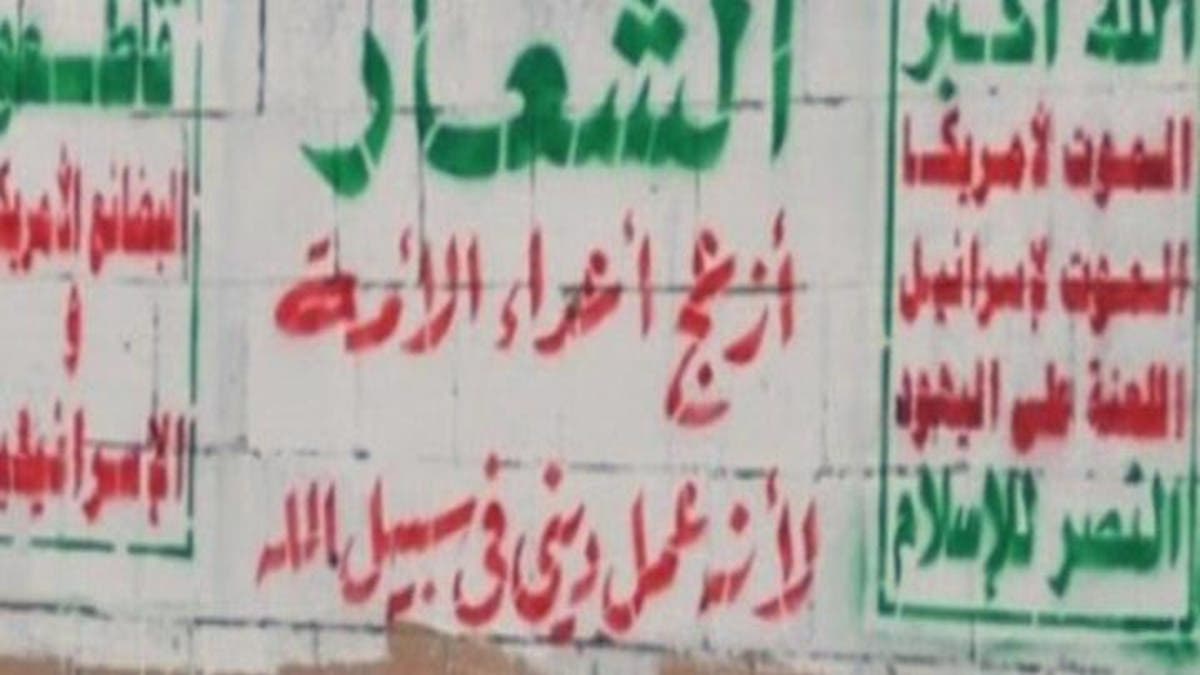 الله أكبر
الموت لأمريكا
الموت لإسرائيل
اللعنة على اليهود
النصر للإسلام
الشعار
أزعج أعداء الأمة
لأنه عمل ديني في سبيل الله
قاطعوا
البضائع الأمريكية
و
الإسرائيلية